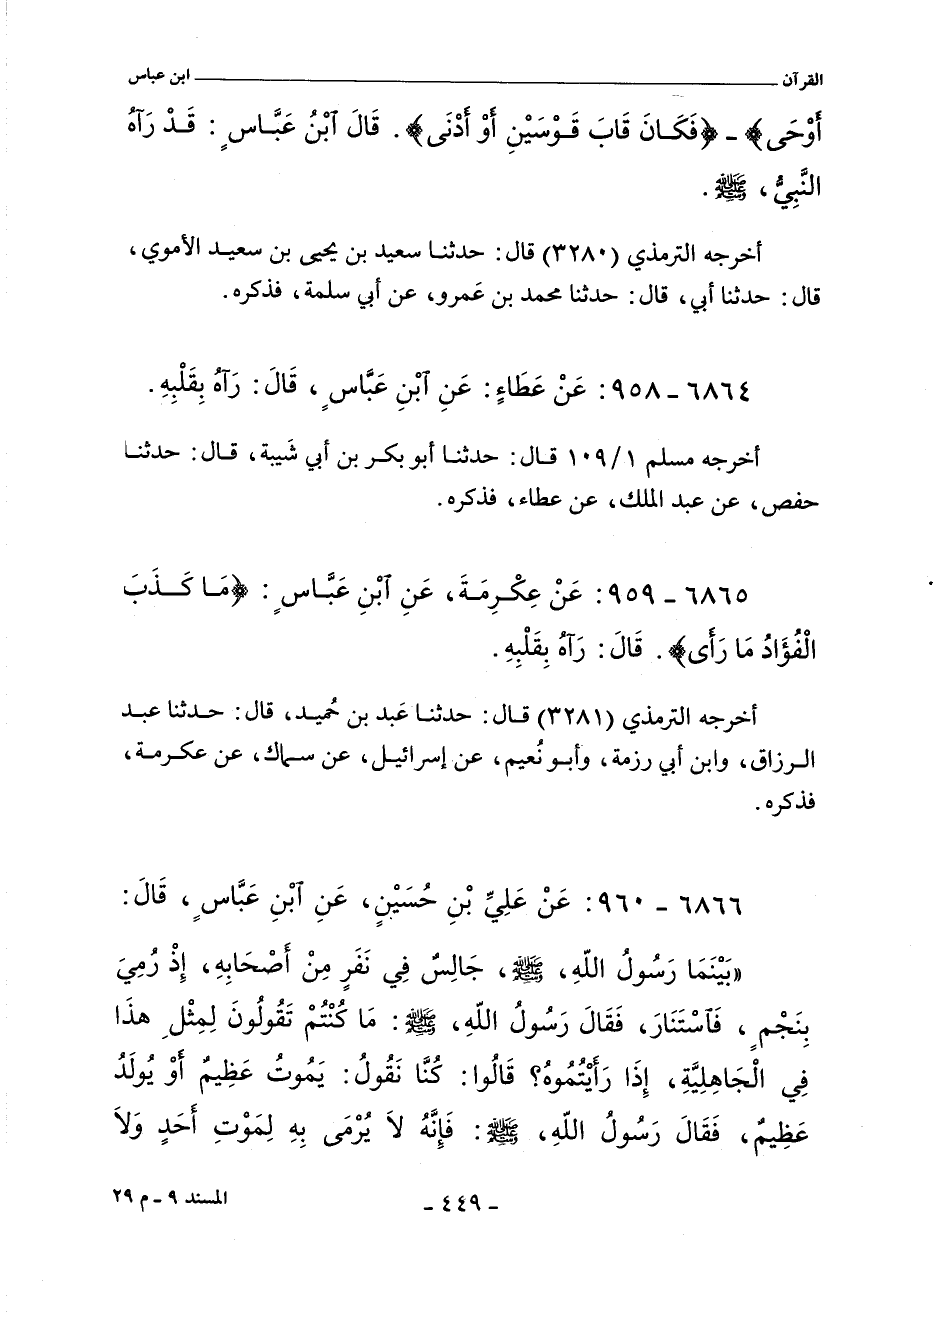 القرآن ـــــــــــــــــــــــــــــــــــــــــ ابن عباس
أَوْحَى﴾ ـ ﴿فَكَـانَ قَابَ قَـوْسَيْنِ أَوْ أَدْنَى﴾. قَالَ آبْنُ عَبَّـاسٍ: قَـدْ رَآهُ
النَّبِيُّ، ﷺ.
أخرجه الترمذي (٣٢٨٠) قال: حدثنـا سعيد بن يحيى بن سعيـد الأموي،
قال: حدثنا أبي، قال: حدثنا محمد بن عَمرو، عن أبي سلمة، فذكره.
٦٨٦٤ ـ ٩٥٨: عَنْ عَطَاءٍ: عَنِ آبْنِ عَبَّاسٍ، قَالَ: رَآهُ بِقَلْبِهِ.
أخرجه مسلم ١٠٩/١ قـال: حدثنـا أبو بكـر بن أبي شَيبة، قـال: حدثنـا
حفص، عن عبد الملك، عن عطاء، فذكره.
٦٨٦٥ ـ ٩٥٩: عَنْ عِكْـرِمَـةَ، عَنِ آبْنِ عَبَّـاسٍ: ﴿مَـا كَـذَبَ
الْفُؤَادُ مَا رَأَى﴾. قَالَ: رَآهُ بِقَلْبِهِ.
أخرجه الترمذي (٣٢٨١) قـال: حدثنـا عَبد بن حُميـد، قال: حـدثنا عبـد
الـرزاق، وابن أبي رزمة، وأبـو نُعيم، عن إسرائيـل، عن سـماك، عن عكـرمـة،
فذكره.
٦٨٦٦ ـ ٩٦٠: عَنْ عَلِيِّ بْنِ حُسَيْنٍ، عَنِ آبْنِ عَبَّاسٍ، قَالَ:
«بَيْنَمَا رَسُولُ اللّهِ، ﷺ، جَالِسٌ فِي نَفَرٍ مِنْ أَصْحَابِهِ، إِذْ رُمِيَ
بِنَجْمٍ، فَآسْتَنَارَ، فَقَالَ رَسُولُ اللّهِ، ﷺ: مَا كُنْتُمْ تَقُولُونَ لِمِثْلِ هذَا
فِي الْجَاهِلِيَّةِ، إِذَا رَأَيْتُمُوهُ؟ قَالُوا: كُنَّا نَقُولُ: يَمُوتُ عَظِيمٌ أَوْ يُولَدُ
عَظِيمٌ، فَقَالَ رَسُولُ اللّهِ، ﷺ: فَإِنَّهُ لاَ يُرْمَى بِهِ لِمَوْتِ أَحَدٍ وَلاَ
ـ ٤٤٩ ـ
المسند ٩ ـ م ٢٩